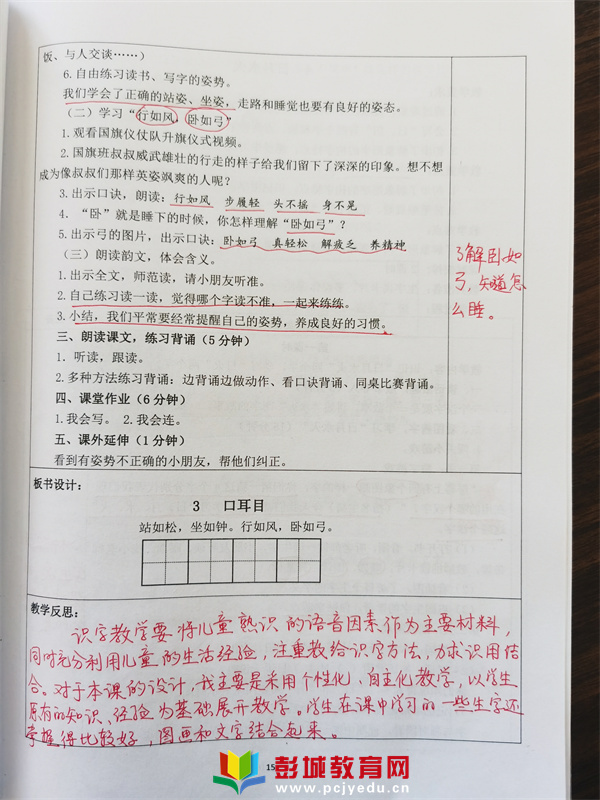 饭、与人交谈……）
6.自由练习读书、写字的姿势。
我们学会了正确的站姿、坐姿，走路和睡觉也要有良好的姿态。
（二）学习“行如风，卧如弓”
1.观看国旗仪仗队升旗仪式视频。
2.国旗班叔叔威武雄壮的行走的样子给我们留下了深深的印象。想不想
成为像叔叔们那样英姿飒爽的人呢？
3.出示口诀，朗读：行如风 步履轻 头不摇 身不晃
4．“卧”就是睡下的时候，你怎样理解“卧如弓”？
5.出示弓的图片，出示口诀：卧如弓 真轻松 解疲乏 养精神
（三）朗读韵文，体会含义。
1.出示全文，师范读，请小朋友听准。
2.自己练习读一读，觉得哪个字读不准，一起来练练。
3.小结，我们平常要经常提醒自己的姿势，养成良好的习惯。
三、朗读课文，练习背诵（5 分钟）
1．听读，跟读。
2.多种方法练习背诵：边背诵边做动作、看口诀背诵、同桌比赛背诵。
四、课堂作业（6 分钟）
1.我会写。 2.我会连。
五、课外延伸（1 分钟）
看到有姿势不正确的小朋友，帮他们纠正。
了解卧如
弓，知道怎
么睡。
板书设计：
3 口耳目
站如松，坐如钟。行如风，卧如弓。
教学反思：
识字教学要将儿童熟识的语音因素作为主要材料，
同时充分利用儿童的生活经验，注重教给识字方法，力求识用结
合。对于本课的设计，我主要是采用个性化、自主化教学，以学生
原有的知识、经验为基础展开教学。学生在课中学习的一些生字还
掌握得比较好，图画和文字结合起来。
15
彭城教育网
www.pcjyedu.cn